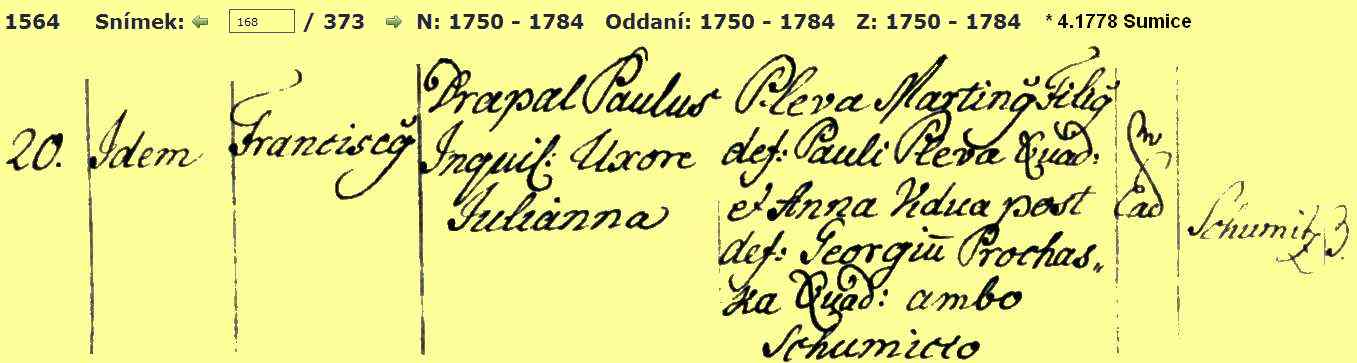 1564 Snímek: 168 / 373 N: 1750 - 1784 Oddaní: 1750 - 1784 Z: 1750 - 1784 * 4.1778 Sumice
20. Idem Franciscg̃ Drapal Paulus Inquil: Uxore Julianna
Pleva Marting̃ Filig̃
def: Pauli Pleva Quad:
et Anna Vidua post
def: Georgiu͞ Prochas„
ka Quad: ambo
Schumicio
Ead
Schumitz 3.